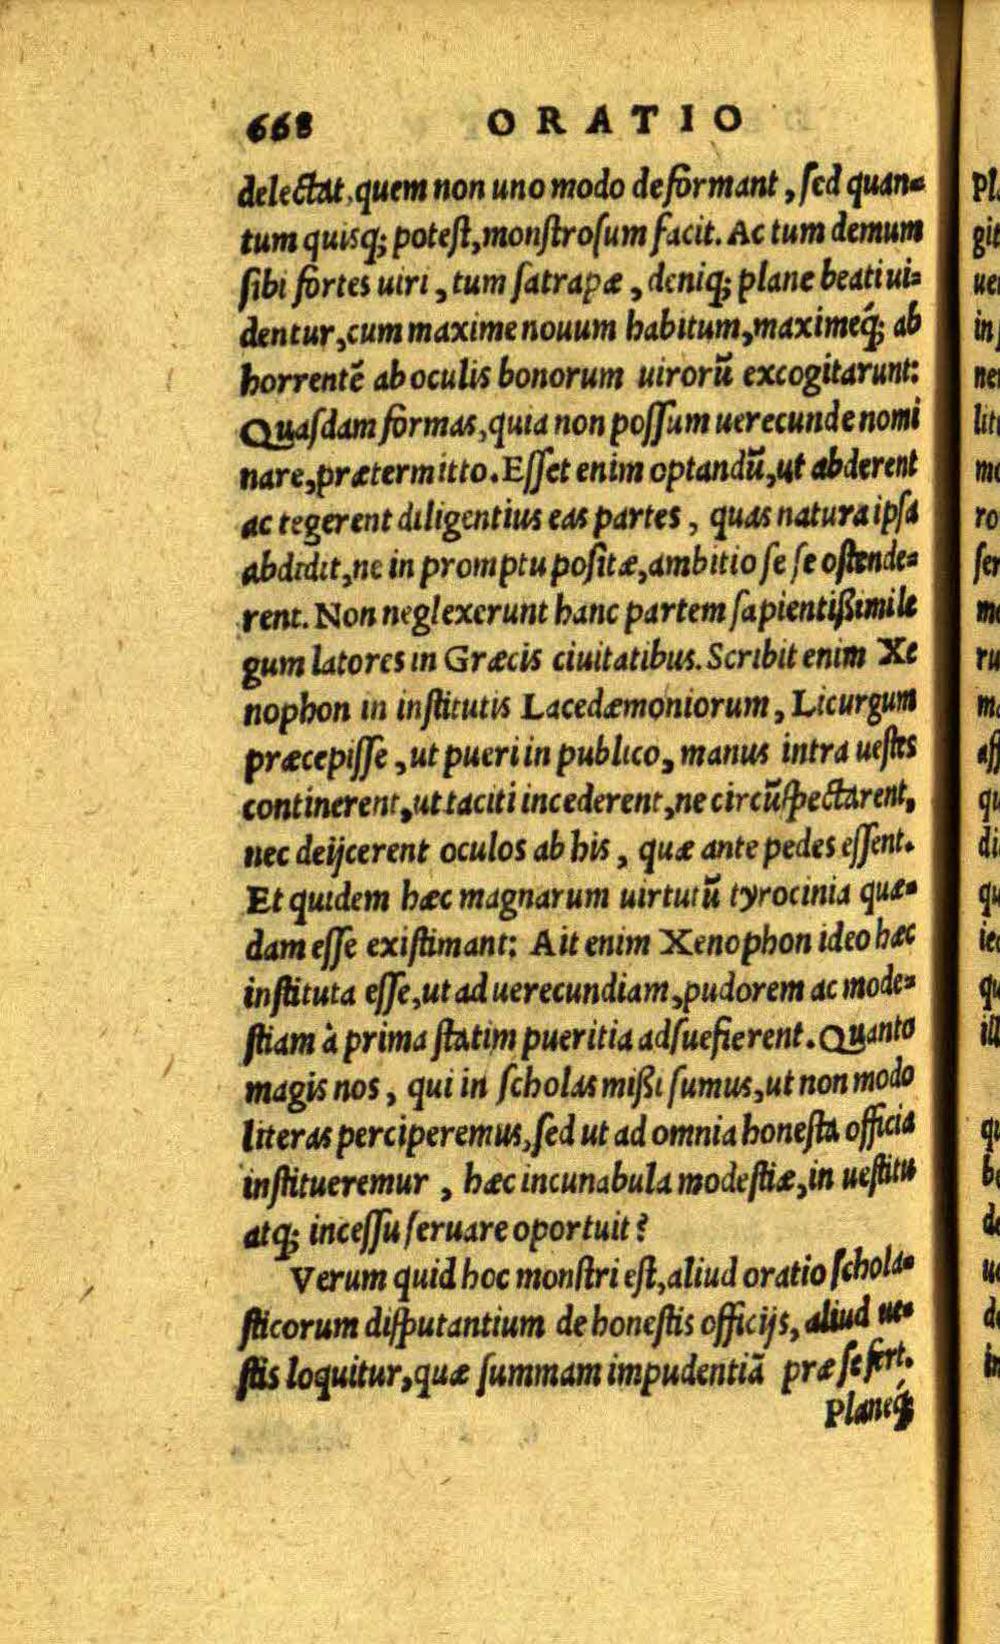 668 ORATIO
delectat, quem non uno modo deformant, sed quan=
tum quisq; potest, monstrosum facit. Ac tum demum
sibi fortes uiri, tum satrapæ, deniq; plane beati ui=
dentur, cum maxime nouum habitum, maximeq́; ab
horrentẽ ab oculis bonorum uirorũ excogitarunt:
Quasdam formas, quia non possum uerecunde nomi
nare, prætermitto. Esset enim optandũ, ut abderent
ac tegerent diligentius eas partes, quas natura ipsa
abdidit, ne in promptu positæ, ambitiose se ostende=
rent. Non neglexerunt hanc partem sapientißimi le
gum latores in Græcis ciuitatibus. Scribit enim Xe
nophon in institutis Lacedæmoniorum, Licurgum
præcepisse, ut pueri in publico, manus intra uestes
continerent, ut taciti incederent, ne circũspectarent,
nec deijcerent oculos ab his, quæ ante pedes essent.
Et quidem hæc magnarum uirtutũ tyrocinia quæ=
dam esse existimant: Ait enim Xenophon ideo hæc
instituta esse, ut ad uerecundiam, pudorem ac mode=
stiam à prima statim pueritia adsuefierent. Quanto
magis nos, qui in scholas mißi sumus, ut non modo
literas perciperemus, sed ut ad omnia honesta officia
institueremur, hæc incunabula modestiæ, in uestitu
atq; incessu seruare oportuit?
Verum quid hoc monstri est, aliud oratio schola=
sticorum disputantium de honestis officijs, aliud ue=
stis loquitur, quæ summam impudentiã præ se fert.
Planeq́;